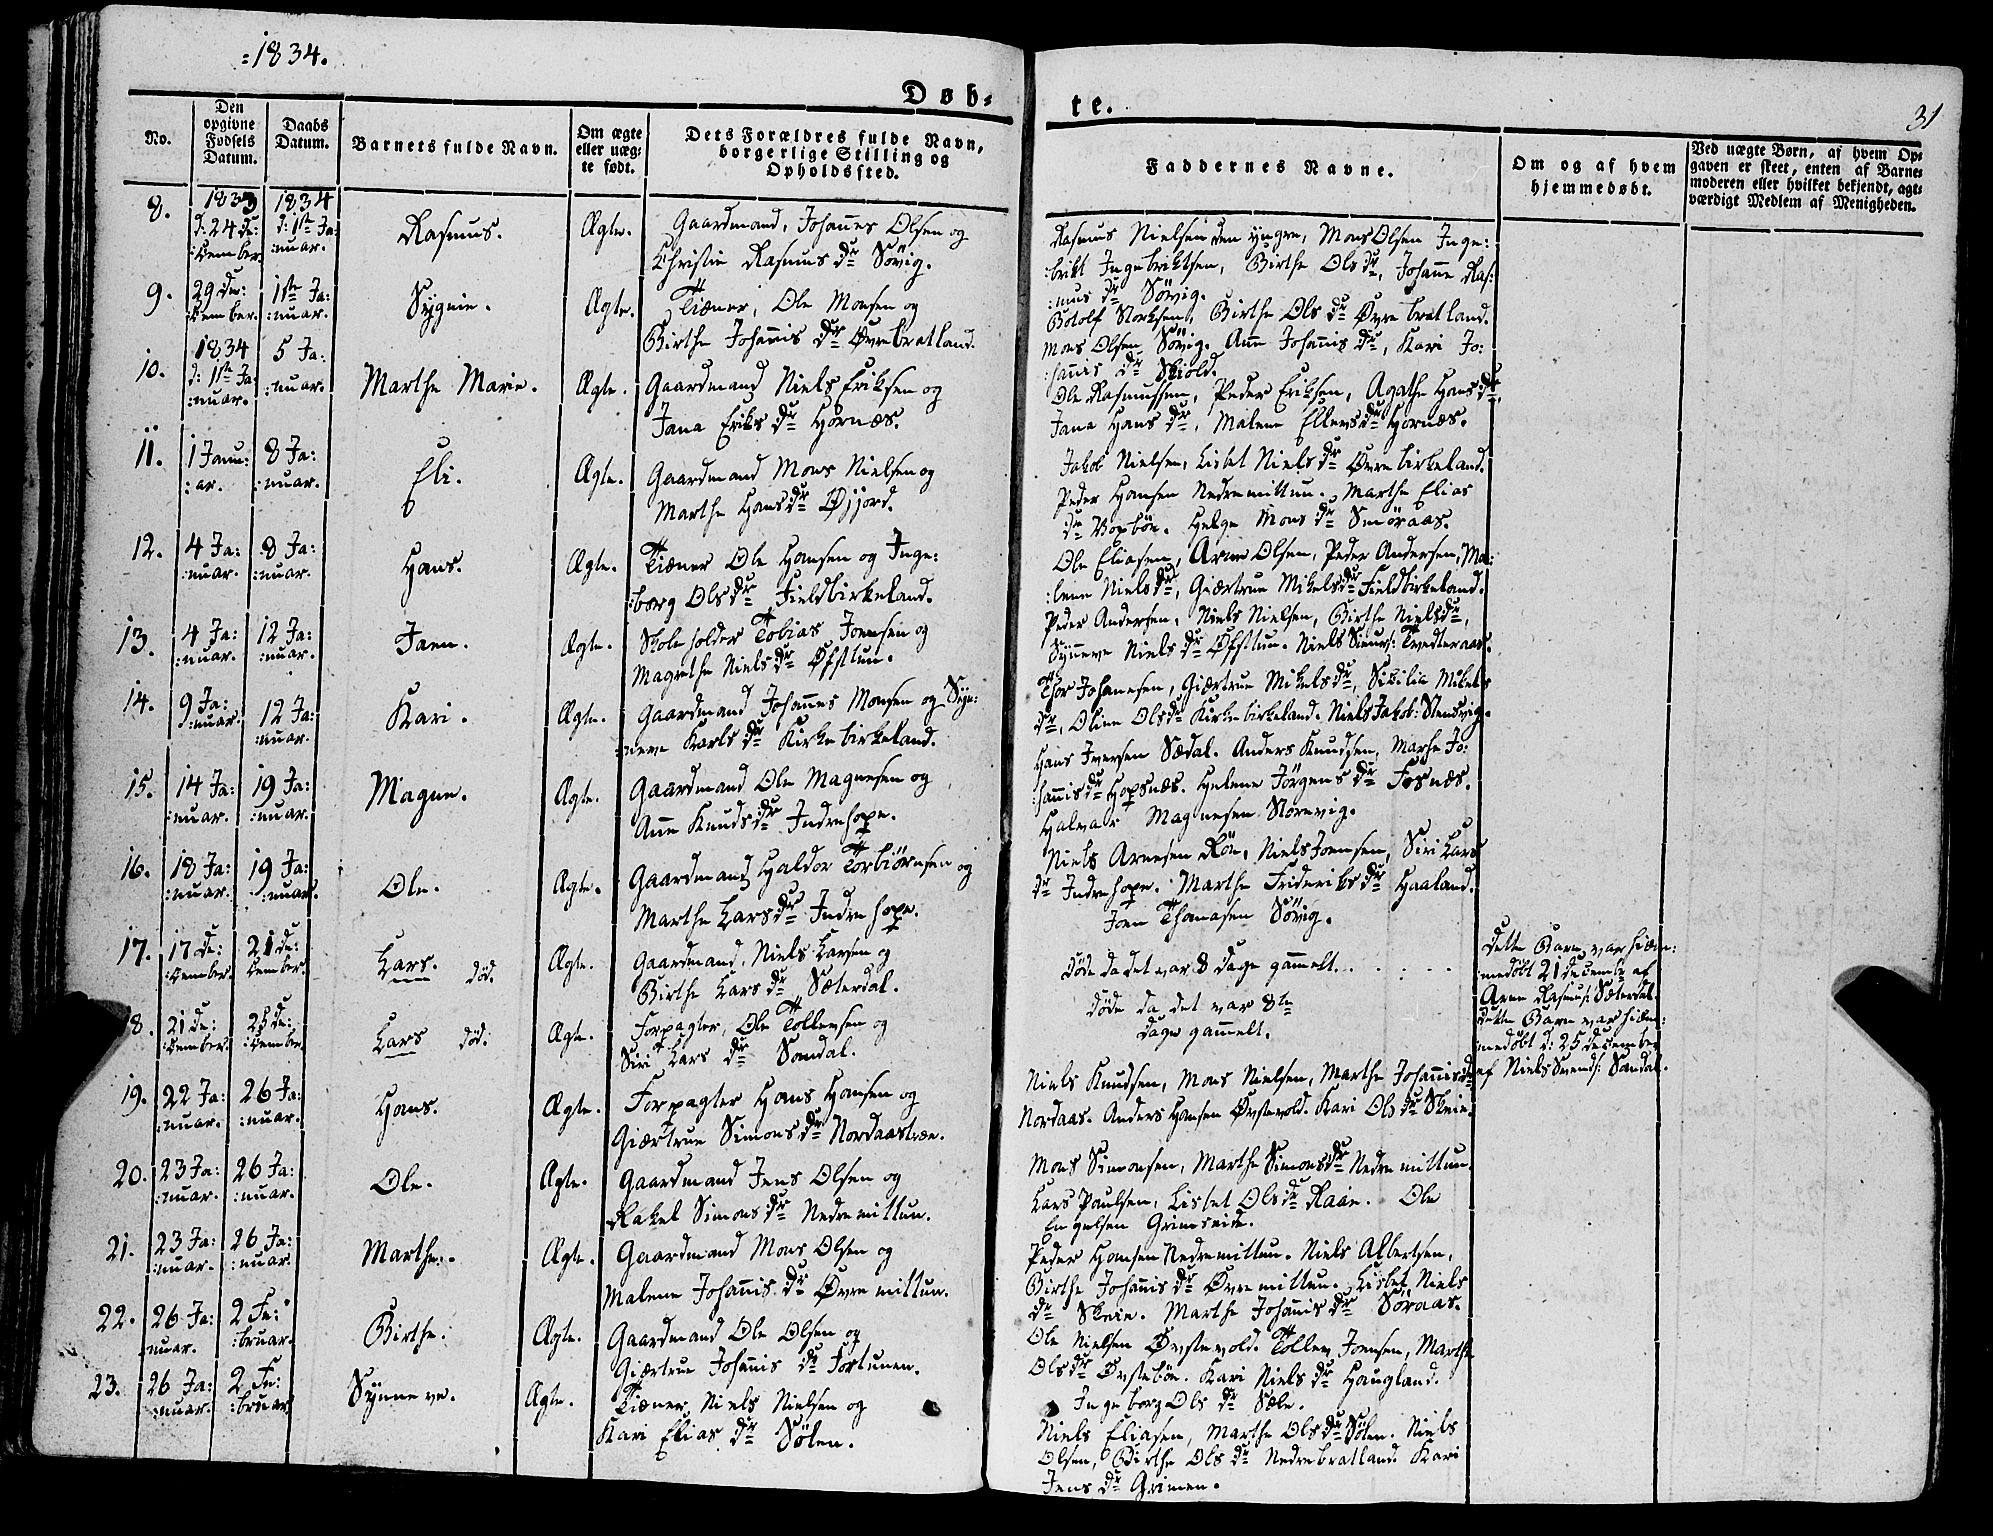 =1834.
Døb=
te.
31
No.
Den opgivne Fødsels Datum.
Daabs Datum.
Barnets fulde Navn.
Om ægte eller uæg= te født.
Dets Forældres fulde Navn, borgerlige Stilling og Opholdssted.
Faddernes Navne.
Om og af hvem hjemmedøbt.
Ved uægte Børn, af hvem Op= gaven er skeet, enten af Barne= moderen eller hvilket bekjendt, agt= værdigt Medlem af Menigheden.
8. 1833 d: 24 De: :cember. 1834 d: 1ste Ja: :nuar. Rasmus. Ægte. Gaardmand, Johannes Olsen og
Christie Rasmus dr Sövig.
Rasmus Nielsen den yngre, Mons Olsen Inge:
:brikt Ingebriktsen, Birthe Ols dr, Johanne Ras:
:mus dr Sövig.
9. 29 De: :cember. 1ste Ja: :nuar. Sygnie. Ægte. Tiæner, Ole Monsen og
Birthe Johannis dr Øvrebratland.
Botolf Storksen, Birthe Ols dr Øvre bratland.
Mons Olsen Sövig. Anne Johannis dr, Kari Jo:
:hannis dr Skiold.
10. 1834 d: 1ste Ja: :nuar. 5 Ja: :nuar. Marthe Marie. Ægte. Gaardmand Niels Eriksen og
Jana Eriks dr Hornæs.
Ole Rasmussen, Peder Eriksen, Agathe Hans dr,
Jana Hans dr, Malene Ellens dr Hornæs.
11. 1 Janu: :ar. 8 Ja: :nuar. Eli. Ægte. Gaardmand Mons Nielsen og
Marthe Hans dr Øjjord.
Jakob Nielsen, Lisbet Niels dr Øvre birkeland.
Peder Hansen Nedremittun. Marthe Elias
dr Voxböe. Helge Mons dr Smöraas.
12. 4 Ja: :nuar. 8 Ja: :nuar. Hans. Ægte. Tiæner Ole Hansen og Inge:
:borg Ols dr Fieldbirkeland.
Ole Eliasen, Arne Olsen, Peder Andersen, Ma:
:lene Niels dr, Giærtrue Mikels dr Fieldbirkeland.
13. 4 Ja: :nuar. 12 Ja: :nuar. Joen. Ægte. Skoleholder Tobias Joensen og
Magrethe Niels dr Øfsttun.
Peder Andersen, Niels Nielsen, Birthe Niels dr,
Synneve Niels dr Øfsttun. Niels Siurs: Tvedteraas.
14. 9 Ja: :nuar. 12 Ja: :nuar. Kari. Ægte. Gaardmand Johannes Monsen og Syn:
:neve Karls dr Kirkebirkeland.
Thor Johanesen, Giærtrue Mikels dr, Sisilia Mikels
dr, Oline Ols dr Kirkebirkeland. Niels Jakob: Stendvig.
15. 14 Ja: :nuar. 19 Ja: :nuar. Magne. Ægte. Gaardmand Ole Magnesen og
Anne Knuds dr Indrehope.
Hans Iversen Sædal. Anders Knudsen, Marthe Jo:
:hannis dr Hopsnæs. Helene Jörgens dr Fosnæs.
Halvar Magnesen Storevig.
16. 18 Ja: :nuar. 19 Ja: :nuar. Ole. Ægte. Gaardmand Haldor Torbiörnsen og
Marthe Lars dr Indrehope.
Niels Arnesen Röe, Niels Joensen, Siri Lars
dr Indrehope. Marthe Frideriks dr Haaland.
Joen Thomasen Sövig.
17. 17 De: :cember. 21 De: :cember. Lars. död. Ægte. Gaardmand, Niels Larsen og
Birthe Lars dr Sæterdal.
Döde da det var 8 Dage gammelt. . . . . .
Dette Barn var hiem:
:medöbt 21 December af
Arne Rasmus: Sæterdal.
18. 21 De: :cember. 25 De: :cember. Lars död. Ægte. Forpagter, Ole Tollevsen og
Siri Lars dr Sandal.
Döde da det var 8te
Dage gammelt.
Dette Barn var hiem:
:medöbt d: 25 December
af Niels Svends: Sandal.
19. 22 Ja: :nuar. 26 Ja: :nuar. Hans. Ægte. Forpagter Hans Hansen og
Giærtrue Simons dr Nordaastræe.
Niels Knudsen, Mons Nielsen, Marthe Johannis dr
Nordaas. Anders Hansen Øvstevold. Kari Ols dr Skeie.
20. 23 Ja: :nuar. 26 Ja: :nuar. Ole. Ægte. Gaardmand Jens Olsen og
Rakel Simons dr Nedremittun.
Mons Simonsen, Marthe Simons dr Nedre mittun.
Lars Paulsen, Lisbet Ols dr Raae. Ole
Engelsen Grimseide.
21. 23 Ja: :nuar. 26 Ja: :nuar. Marthe. Ægte. Gaardmand Mons Olsen og
Malene Johannis dr Øvre mittun.
Peder Hansen Nedremittun. Niels Albertsen,
Birthe Johannis dr Øvre mittun. Lisbet Niels
dr Skeie. Marthe Johannis dr Söraas.
22. 26 Ja: :nuar. 2 Fe: :bruar. Birthe. Ægte. Gaardmand Ole Olsen og
Giærtrue Johannis dr Fortunen.
Ole Nielsen Øvstevold. Tollev Joensen, Marthe
Ols dr Övsteböe. Kari Niels dr Haugland.
Ingeborg Ols dr Sæle.
23. 26 Ja: :nuar. 2 Fe: :bruar. Synneve. Ægte. Tiæner, Niels Nielsen og
Kari Elias dr Sølen.
Niels Eliasen, Marthe Ols dr Sölen. Niels
Olsen, Birthe Ols dr Nedrebratland. Kari
Jens dr Grimen.